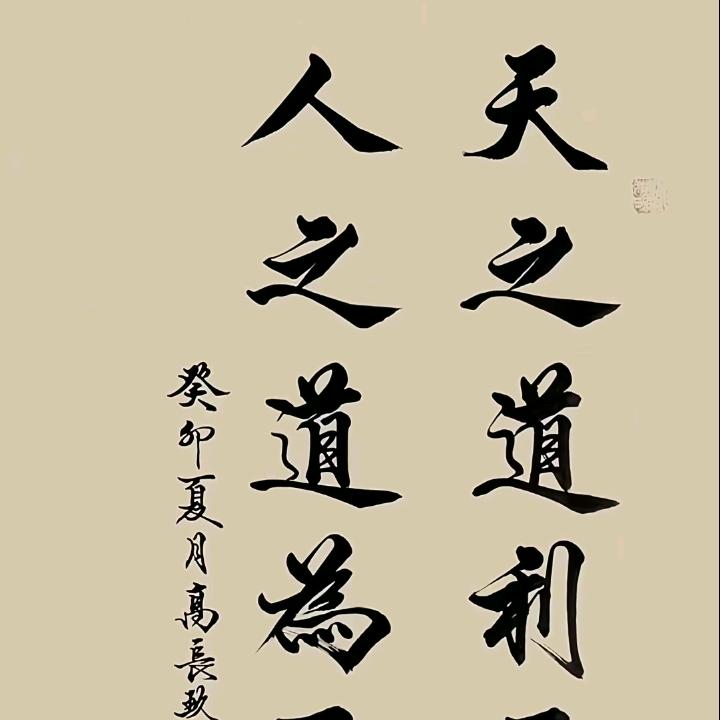 天之道利
人之道為
癸卯夏月高長